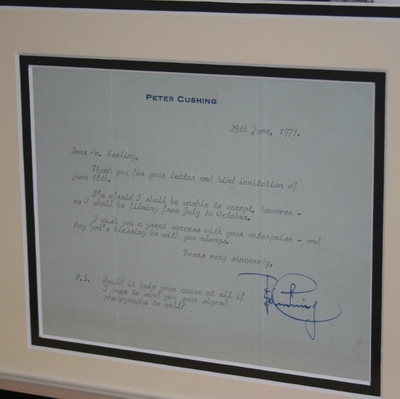 PETER CUSHING
29th June, 1971.
Dear Mr. Keeling,
Thank you for your letter and kind invitation of
June 18th.
I'm afraid I shall be unable to accept, however -
as I shall be filming from July to October.
I wish you a great success with your enterprise - and
May God's blessing be with you always.
Yours very sincerely,
Peter Cushing
P.S. Would it help your cause at all if
I were to send you some signed
photographs to sell?